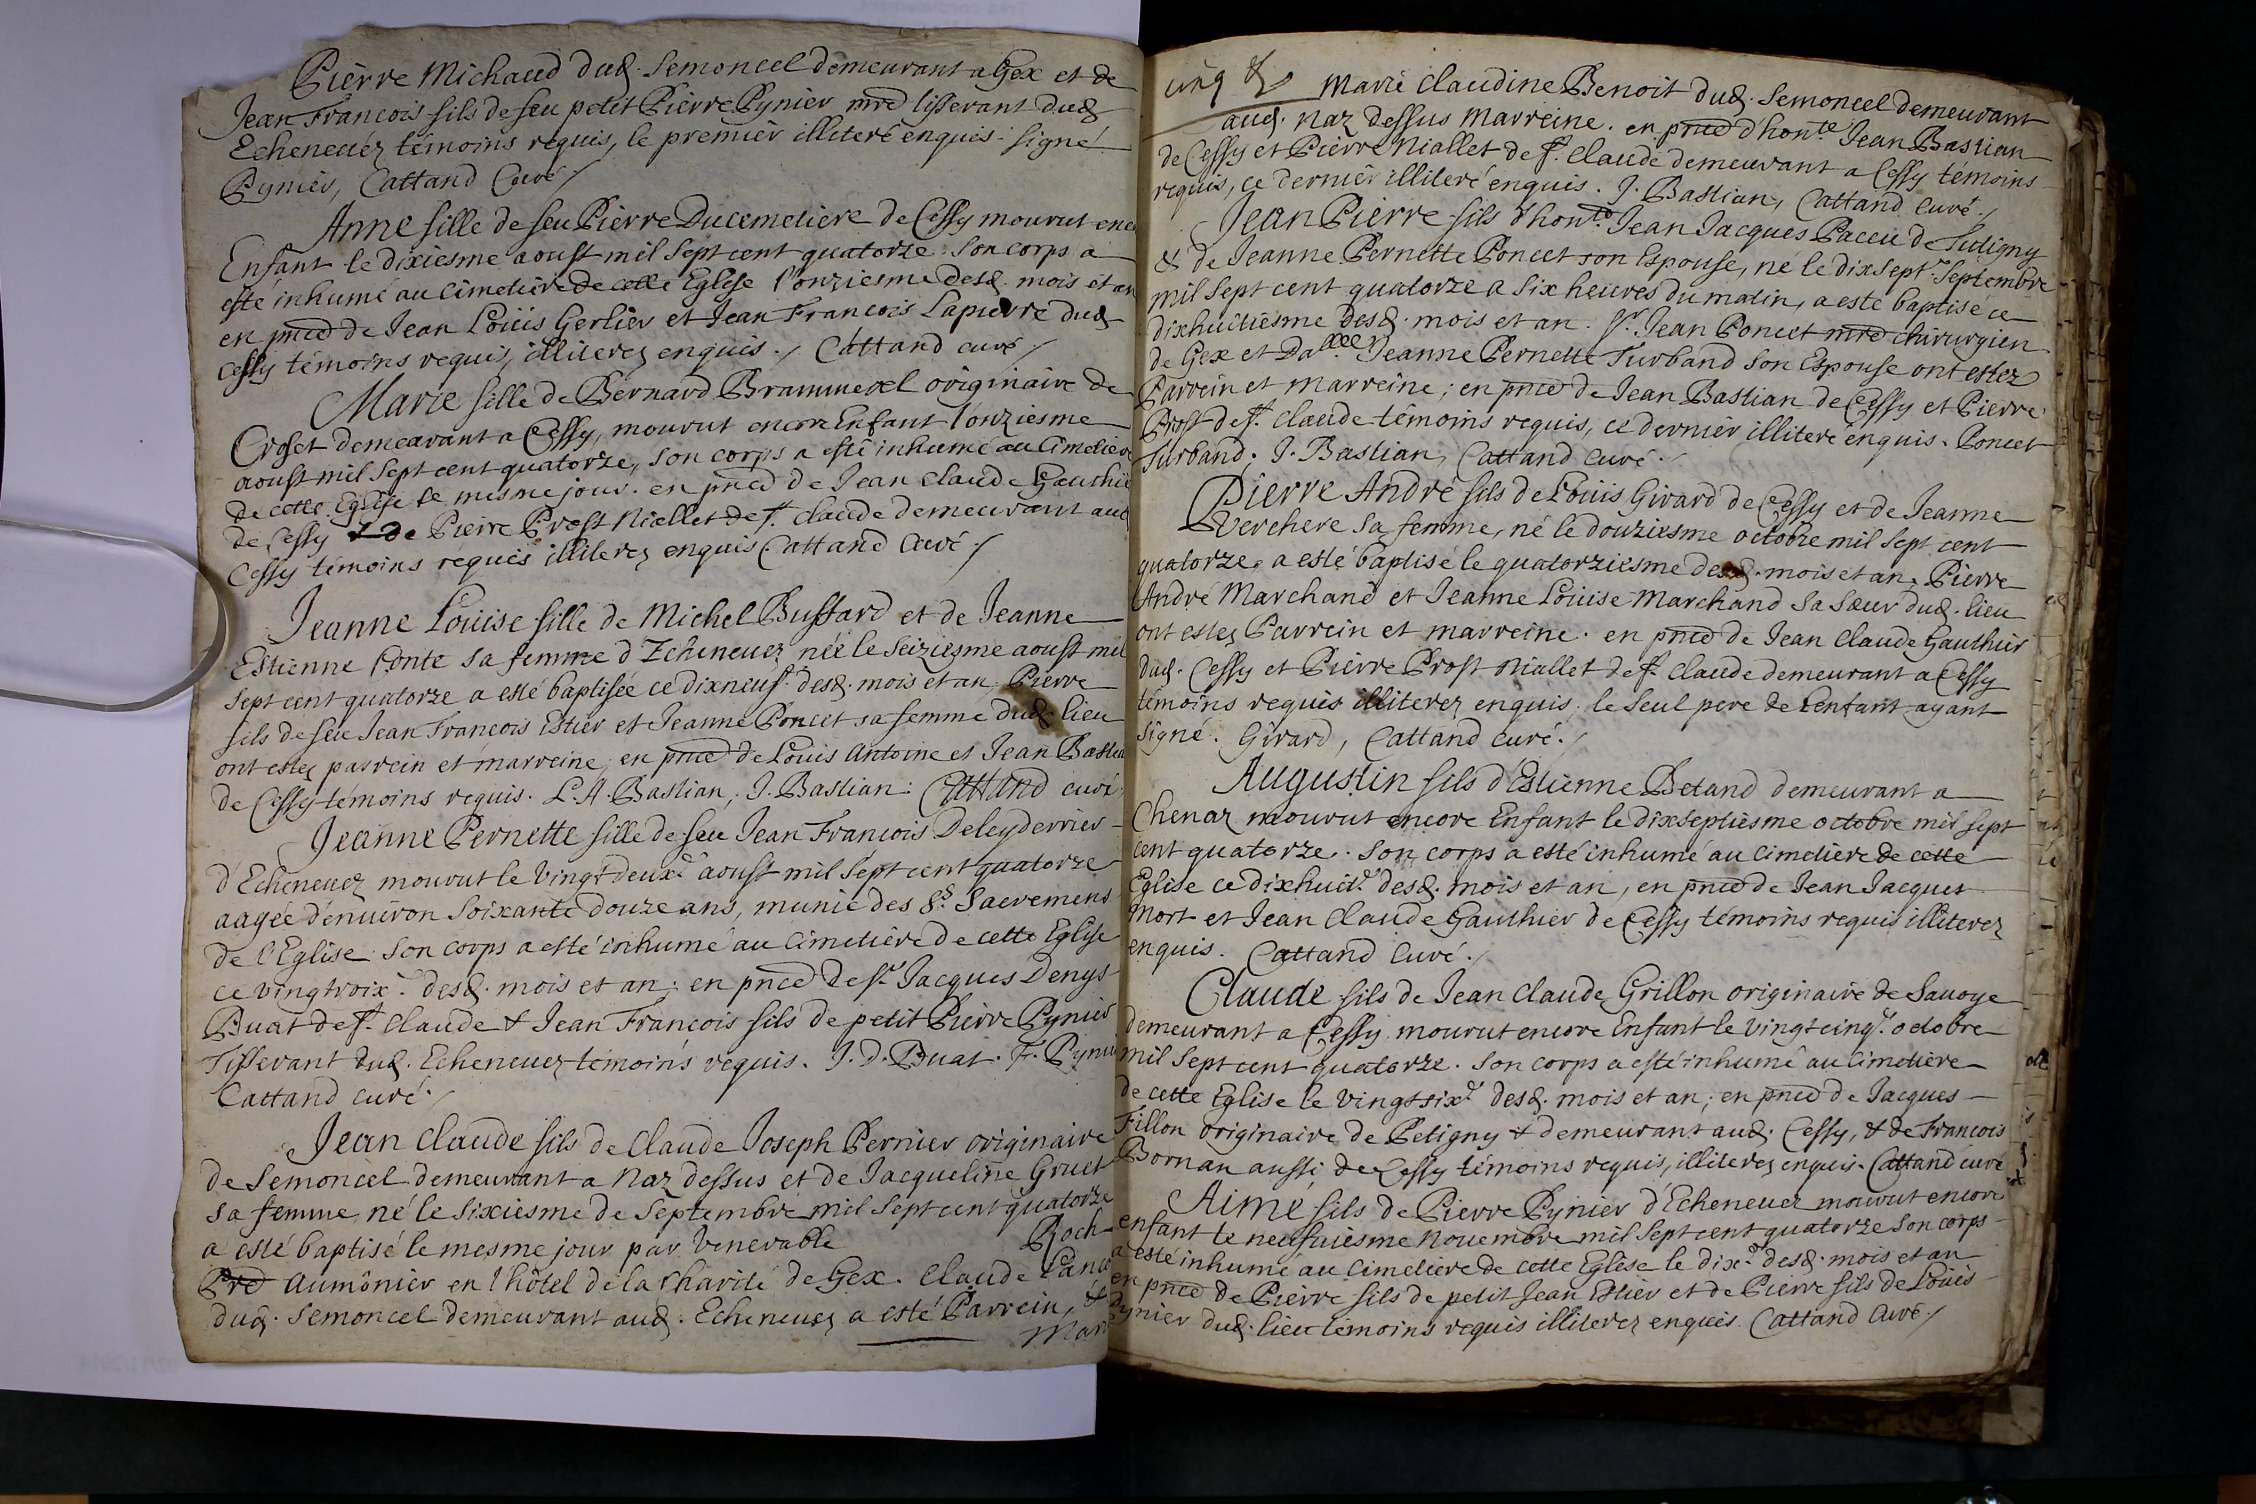 Pierre Michaud dud. Semoncel demeurant a Gex et de
Jean Francois fils de feu petit Pierre Pynier mre tisserant dud.
Echeneuéz témoins requis, le premier illiteré enquis. signé
Pynier, Cattand Curé /
Anne fille de feu Pierre Ducemetiere de Cessy mourut enco
Enfant le dixiesme aoust mil sept cent quatorze. son corps a
esté inhumé au Cimetiere de cette Eglise l'onziesme desd. mois et an
en pnce de Jean Loüis Gerlier et Jean Francois Lapierre dud.
Cessy témoins requis, illiterez enquis. / Cattand curé /
Marie fille de Bernard Brammerel originaire de
Croset demeurant a Cessy, mourut encore Enfant l'onziesme
aoust mil sept cent quatorze, son corps a esté inhumé au Cimetier
de cette Eglise le mesme jour. en pnce de Jean Claude Gauthie
de Cessy & de Pierre Prost Niallet de St. Claude demeurant aud
Cessy témoins requis illiterez enquis Cattand Curé /
Jeanne Loüise fille de Michel Bussard et de Jeanne
Estienne Conte sa femme d'Echeneuez née le seiziesme aoust mil
sept cent quatorze a esté baptisée ce dixneuf. desd. mois et an. Pierre
fils de feu Jean François Estier et Jeanne Poncet sa femme dud. lieu
ont estez parrein et marreine, en pnce de Loüis Antoine et Jean Bastia
de Cessy témoins requis. L. A. Bastian, J. Bastian. Cattand curé
Jeanne Pernette fille de feu Jean Francois Deleyderrier
d'Echeneuez mourut le vingt deux.e aoust mil sept cent quatorze
aagée d'enuiron soixante douze ans, munie des Ss. Sacremens
de l'Eglise. son corps a esté inhumé au Cimetiere de cette Eglise
ce vingtroix.e desd. mois et an. en pnce de Sr. Jacques Denys
Buat de St. Claude & Jean François fils de petit Pierre Pynier
Tisserant dud. Echeneuez témoins requis. J. D. Buat. F. Pynie
Cattand curé. /
Jean Claude fils de Claude Joseph Pernier originaire
de Semoncel demeurant a Naz dessus et de Jacqueline Gruet
sa femme, né le sixiesme de Septembre mil sept cent quatorze
a esté baptisé le mesme jour par Venerable Roch
Pre Aumônier en l'hôtel de la Charité de Gex. Claude Lanço
dud. Semoncel demeurant aud. Echeneuez a esté Parrein, &
Mari
cinq &
Marie Claudine Benoit dud. Semoncel demeurant
aud. Naz dessus Marreine. en pnce d'honte. Jean Bastian
de Cessy et Pierre Niallet de St. Claude demeurant a Cessy témoins
requis, ce dernier illiteré enquis. J. Bastian, Cattand Curé. /
Jean Pierre fils d'honte. Jean Jacques Paccu de Tutigny
& de Jeanne Pernette Poncet son Espouse, né le dixsept.e Septembre
mil sept cent quatorze a six heures du matin, a esté baptisé ce
dixhuitiesme desd. mois et an. Sr. Jean Poncet mre chirurgien
de Gex et Dalle. Jeanne Pernette Turband son Espouse ont estez
Parrein et marreine; en pnce de Jean Bastian de Cessy et Pierre
Prost de St. Claude témoins requis, ce dernier illiteré enquis. Poncet
Turband. J. Bastian, Cattand Curé. /
Pierre André fils de Loüis Girard de Cessy et de Jeanne
Verchere sa femme, né le douziesme octobre mil sept cent
quatorze, a esté baptisé le quatorziesme desd. mois et an. Pierre
André Marchand et Jeanne Loüise Marchand sa sœur dud. lieu
ont estez Parrein et marreine. en pnce de Jean Claude Gauthier
dud. Cessy et Pierre Prost Niallet de St. Claude demeurant a Cessy
témoins requis illiterez enquis, le seul pere de l'enfant ayant
signé. Girard, Cattand curé. /
Augustin fils d'Estienne Betand demeurant a
Chenaz mourut encore Enfant le dixseptiesme octobre mil sept
cent quatorze. son corps a esté inhumé au cimetiere de cette
Eglise ce dixhuit.e desd. mois et an, en pnce de Jean Jacques
Mort et Jean Claude Gauthier de Cessy témoins requis illiterez
enquis. Cattand Curé. /
Claude fils de Jean Claude Grillon originaire de Sauoye
demeurant a Cessy mourut encore Enfant le vingtcinq.e octobre
mil sept cent quatorze. son corps a esté inhumé au Cimetiere
de cette Eglise le vingtsix.e desd. mois et an; en pnce de Jacques
Fillon originaire de Petigny & demeurant aud. Cessy, & de François
Bornan aussi de Cessy témoins requis, illiterez enquis. Cattand curé
Aimé fils de Pierre Pynier d'Echeneuez mourut encore
enfant le neufuiesme Nouembre mil sept cent quatorze son corps
a esté inhumé au Cimetiere de cette Eglise le dix.e desd. mois et an
en pnce de Pierre fils de petit Jean Estier et de Pierre fils de Loüis
Pynier dud. lieu témoins requis illiterez enquis. Cattand Curé. /